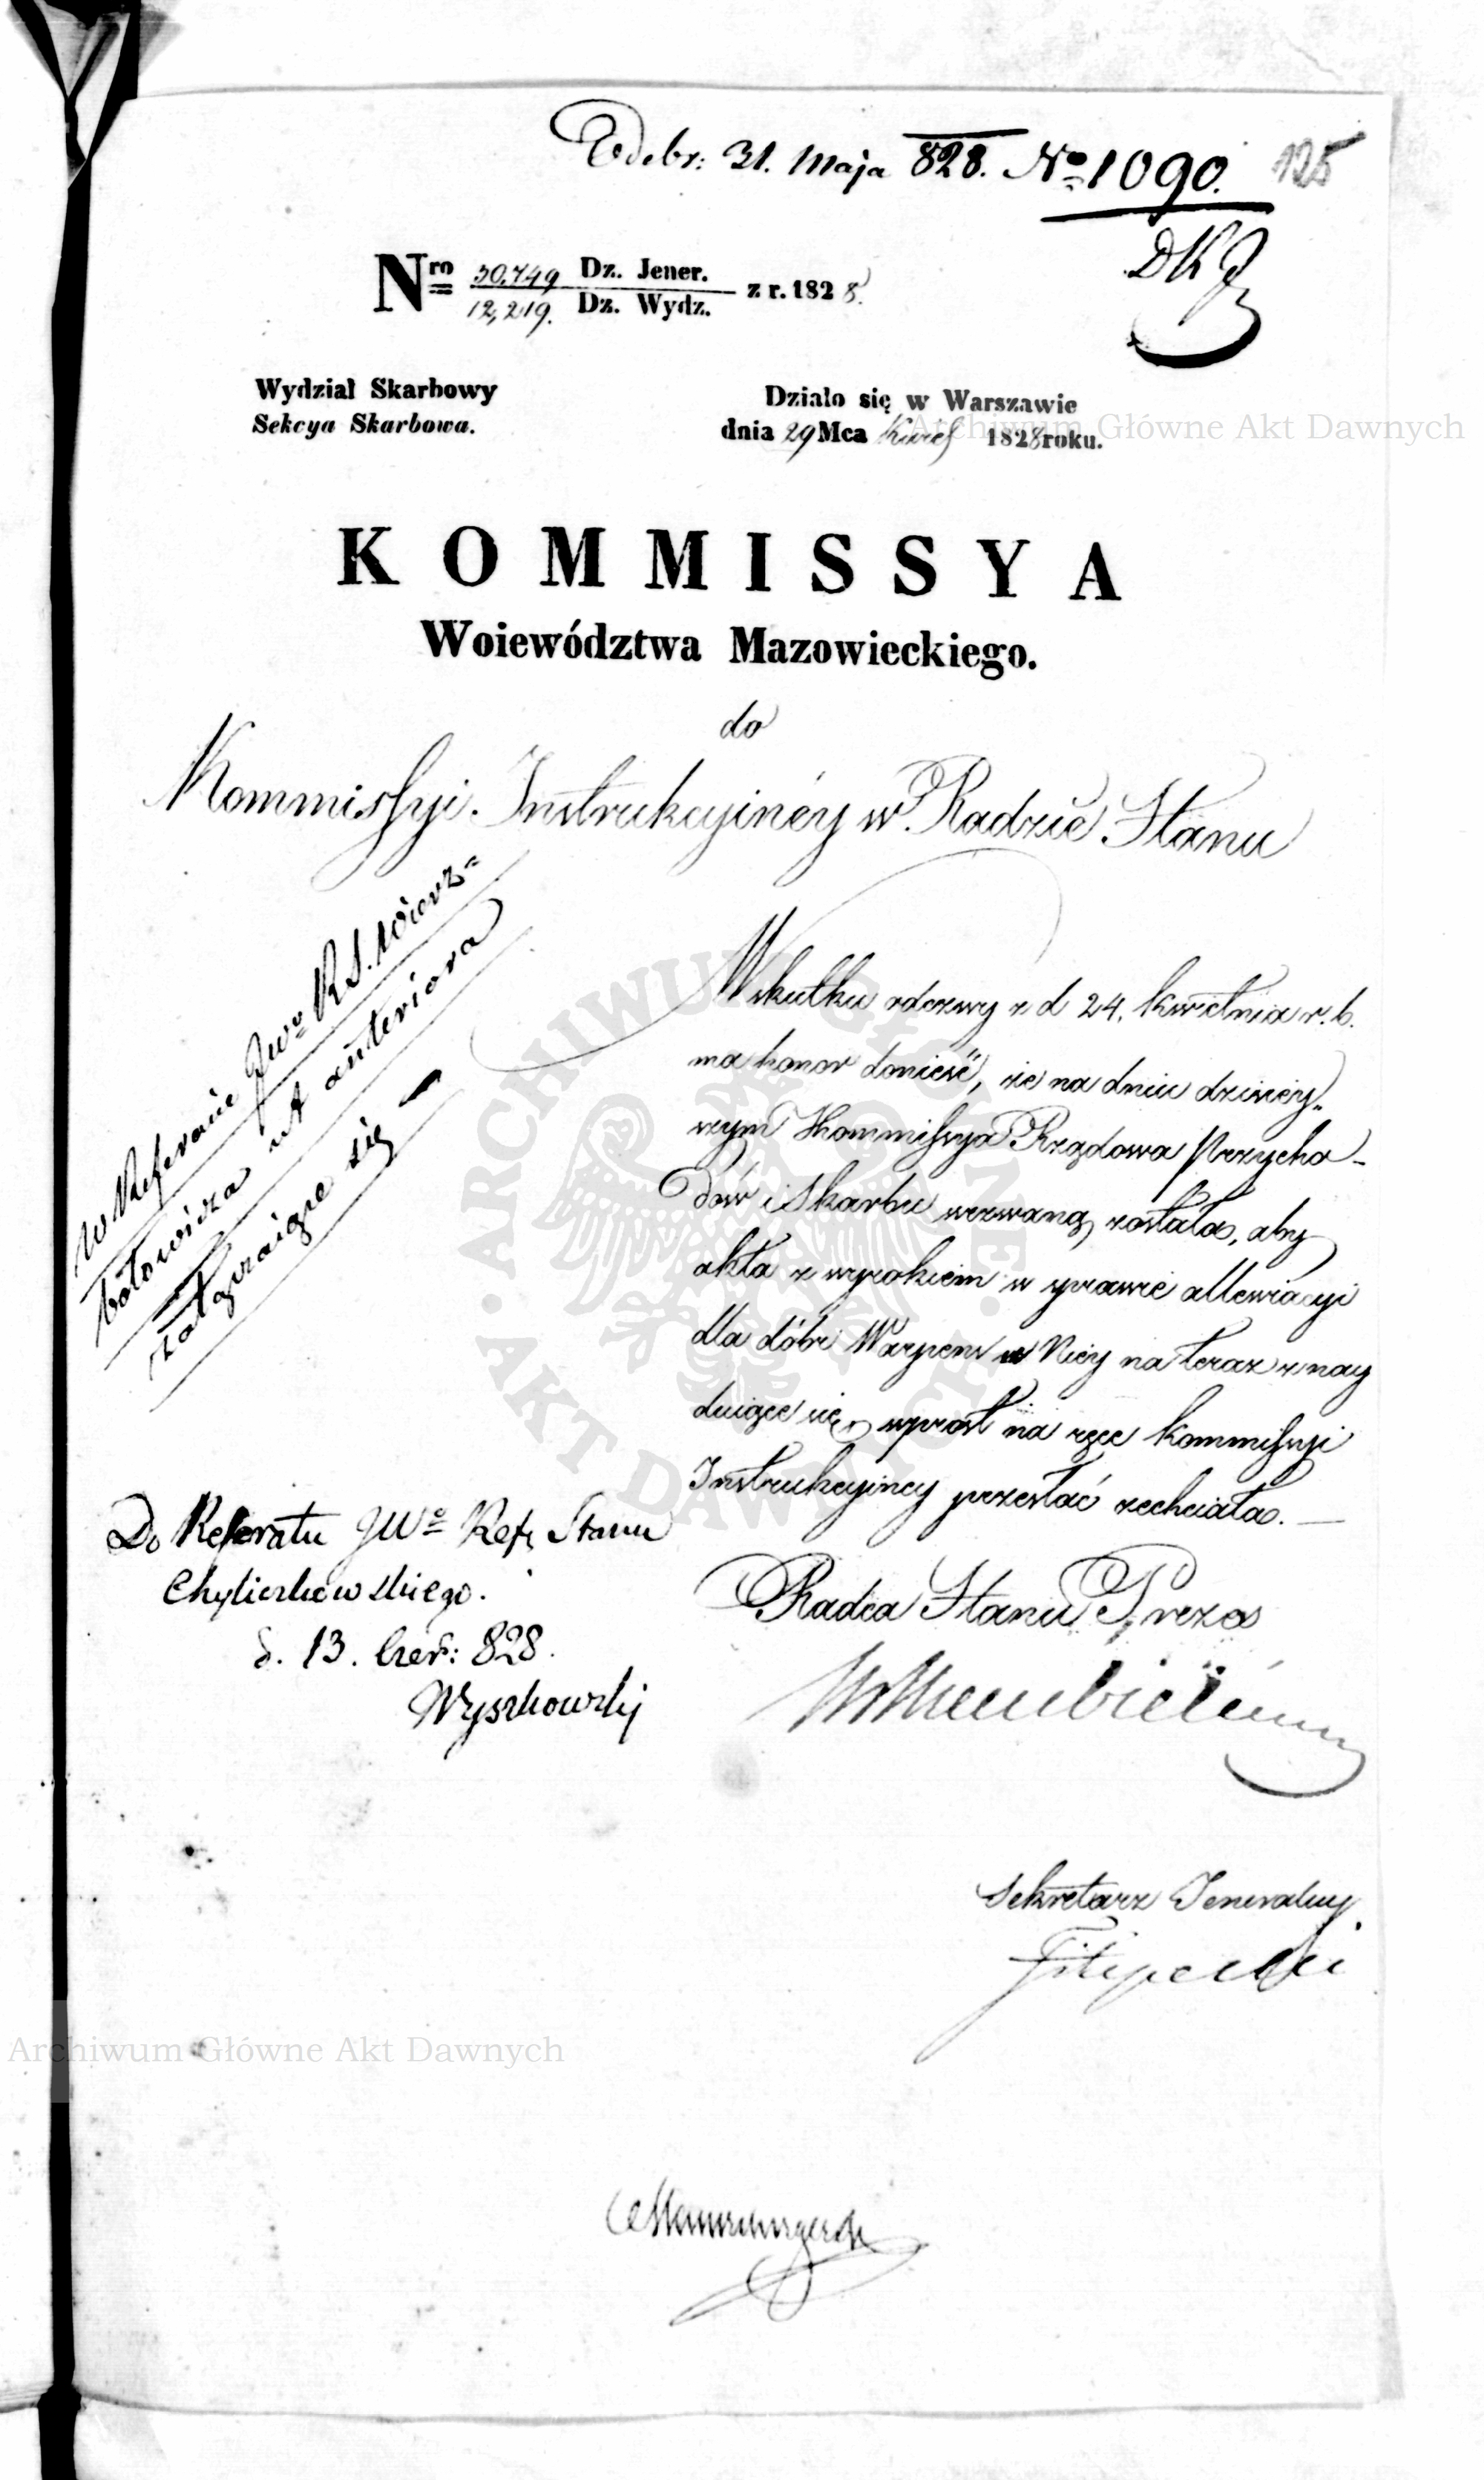 Odebr: 31. Maja 828. No 1090. 125
Nro 30.749 Dz. Jener.
12,219. Dz. Wydz. z r. 1828.
Wydział Skarbowy
Sekcya Skarbowa.
Działo się w Warszawie
dnia 29 Mca 1828 roku.
KOMMISSYA
Woiewództwa Mazowieckiego.
do
Kommissyi Instrukcyinéy w Radzie Stanu
W skutku odezwy z d 24. Kwietnia r. b.
ma honor donieść, że na dniu dzisiey„
szym Kommissya Rządowa Przycho-
dów i Skarbu wezwaną została, aby
akta z wyrokiem w sprawie allewiacyi
dla dóbr w Niey na teraz znay
duiące się, wprost na ręce Kommissyi
Instrukcyiney przesłać zechciała. —
Radca Stanu Prezes
Sekretarz Jeneralny
Filipecki
W Referacie JWo R S. Wierz„
bołowicza ut anteriora
załatwiaiące się
Do Referatu JWo Ref. Stanu
Chyliczkowskiego.
d. 13. Czer: 828.
Wyszkowski
ARCHIWUM GŁÓWNE
AKT DAWNYCH
Archiwum Główne Akt Dawnych
Archiwum Główne Akt Dawnych